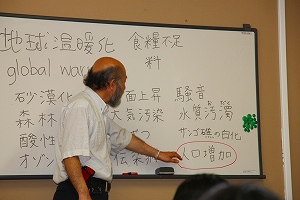 地球温暖化 食糧不足
global wa 料
砂漠化 面上昇 騒音
森林 大気汚染 水質汚濁
酸性 サンゴ礁の白化
オゾン 伝染 人口増加